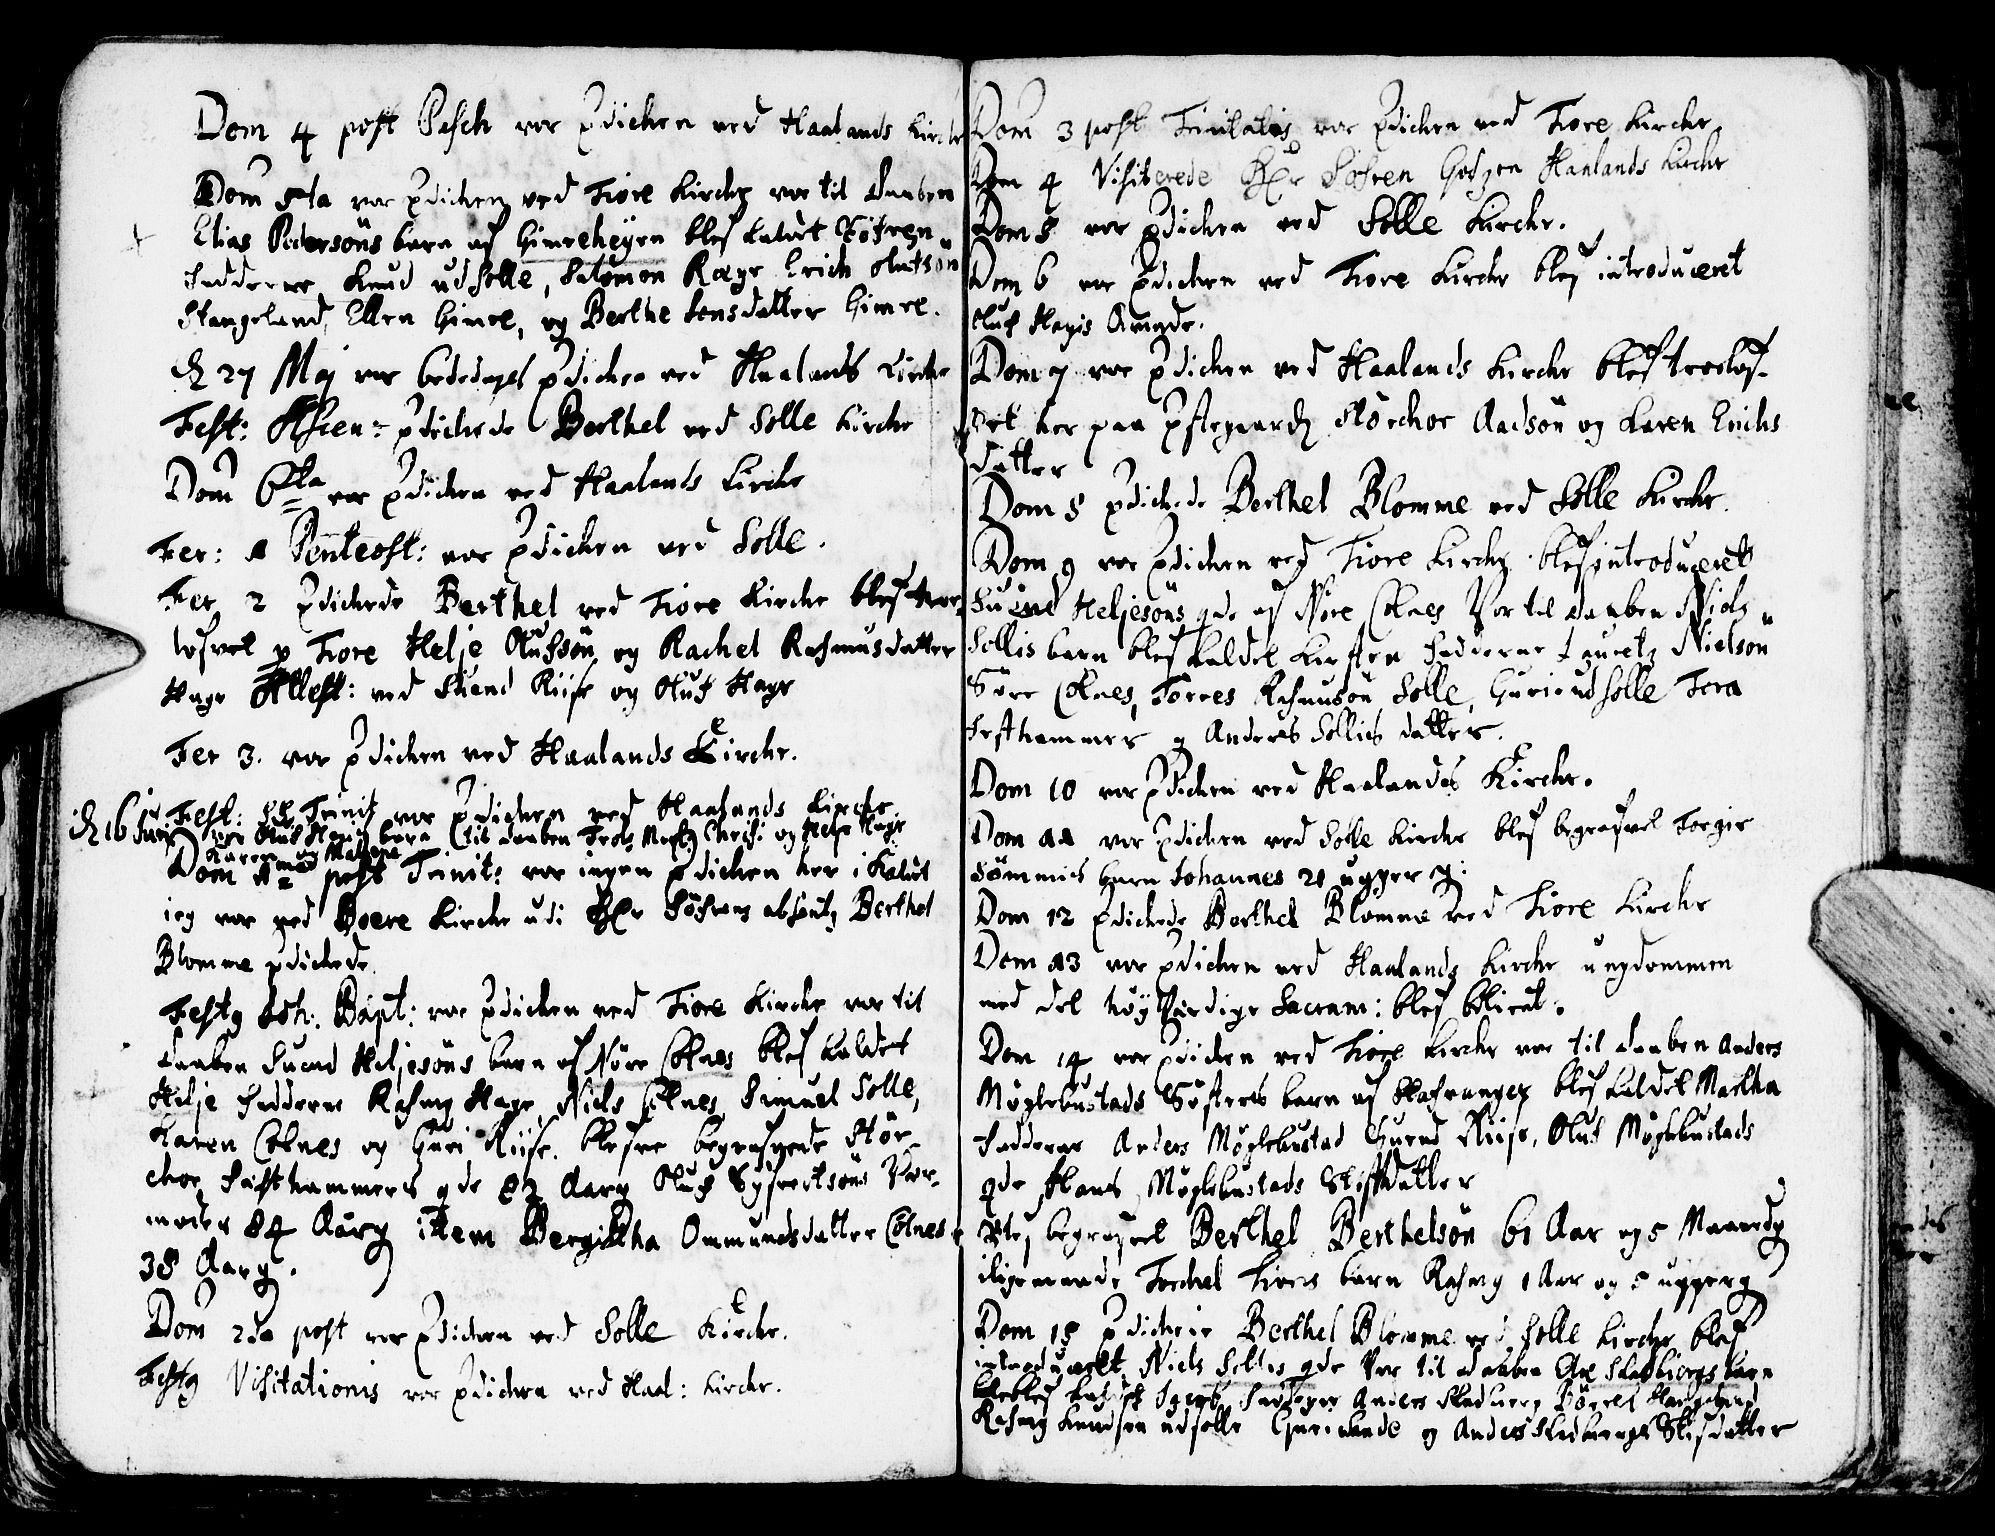 Dom 4 post Pasch var Prdichen ved Haalands Kirche
Dom 5ta var Prdichen ved Tiore Kirche var til daaben
Elias Pedersöns barn af Gimreheyen blef kaldet Töfren
Faddrene Knud ud Solle, Salomon Ræge Erich Olufsön
Stangeland, Ellen Gimre, og Berthe Jensdatter Gimre.
d 27 Maj var bededagst Prdichen ved Haalands Kirche
Fest: Ascen: Prdichede Berthel ved Solle Kirche
Dom 6ta var Prdichen ved Haalands Kirche
Fer: 1 Pentecost: var Prdichen ved Solle.
Fer 2 Prdichede Berthel ved Tiore Kirche blef troe
lofvet p Tiore Helje Olufsön og Rachel Rasmusdatter
Hage Attest: ved Suend Riise og Oluf Hage
Fer 3. var Prdichen ved Haalands Kirche.
Fest: SS Trinit var Prdichen ved Haalands Kirche
d 16 Juni var Oluf Hagis barn til daaben
Karen og
Dom 1ma post Trinit: var ingen Prdichen her i Kaldet
ieg var ved Boere Kirche udi Hr Söfrens absentz Berthel
Blomme Prdichede.
Festo Joh: Bapt: var Prdichen ved Tiore Kirche var til
daaben Suend Heljesöns barn af Nöre Colnes blef kaldet
Helje Faddrene Rasmus Hage, Niels Colnes, Simuel Solle,
Karen Colnes og Guri Riise. blefve begrafvede Stör
chor Festhammers qde 82 Aarg Oluf Syfvertsöns Vær
moder 84 Aarg item Bergittha Ommundsdatter Colnes
38 Aarg.
Dom 2da post var Prdichen ved Solle Kirche.
Festo Visitationis var Prdichen ved Haal: Kirche.
Dom 3 post Trinitatis var Prdichen ved Tiore Kirche
Dom 4 Visiterede Hr Söfren Godzen Haalands Kirche
Dom 5 var Prdichen ved Solle Kirche.
Dom 6 var Prdichen ved Tiore Kirche blef introduceret
Oluf Hagis qde.
Dom 7 var Prdichen ved Haalands Kirche blef troelof
vet her paa Prstegaard Störchor Aadsön og Karen Erichs
datter
Dom 8 Prdichede Berthel Blomme ved Solle Kirche
Dom 9 var Prdichen ved Tiore Kirche blef introduceret
Suend Heljesöns qde af Nöre Colnes Var til daaben Niels
Sollis barn blef kaldet Kirsten Faddrene Lauretz Nielsön
Söre Colnes, Torres Rasmusön Solle, Guri ud Solle Tora
Festhammer og Anders Sollis datter.
Dom 10 var Prdichen ved Haalandes Kirche.
Dom 11 var Prdichen ved Solle Kirche blef begrafvet Torgir
Sömmis barn Johannes 21 ugger g:
Dom 12 Prdichede Berthel Blomme ved Tiore Kirche
Dom 13 var Prdichen ved Haalands Kirche ungdommen
med det höyværdige Sacram: blef betient.
Dom 14 var Prdichen ved Tiore Kirche var til daaben Anders
Myglebustads Sösters barn af Hafvanger blef kaldet Martha
Faddrene Anders Myglebustad Suend Riise, Oluf Myglebustads
qde Hans Myglebustads Stifdatter
Blef begrafvet Berthel Berthelsön 61 Aar og 5 Maaneder
iligemaade Torchel Tiores barn Rasmus 1 Aar og 5 ugger g
Dom 15 Prdichede Berthel Blomme ved Solle Kirche blef
introduceret Niels Sollis qde Var til daaben Skadbiergs barn
blef kaldet Jacob, Faddrene Anders Skadberg Börrel
Rasmus Knudsen ud Solle Guri og Anders Skadbergs Stifdatter